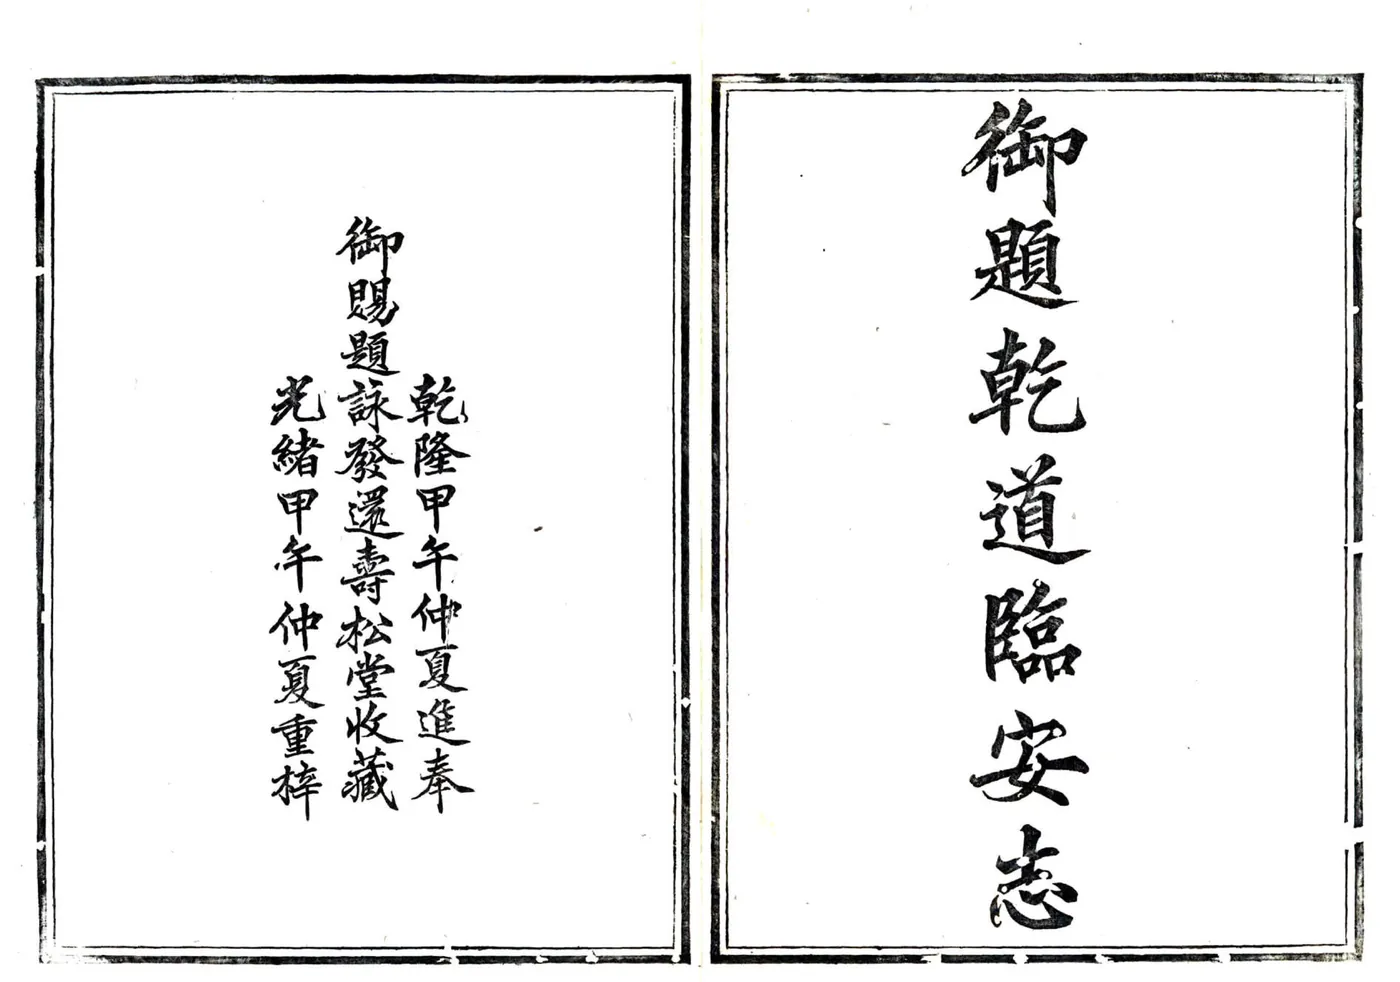 御題乾道臨安志
乾隆甲午仲夏進奉
御賜題詠發還壽松堂收藏
光緒甲午仲夏重梓